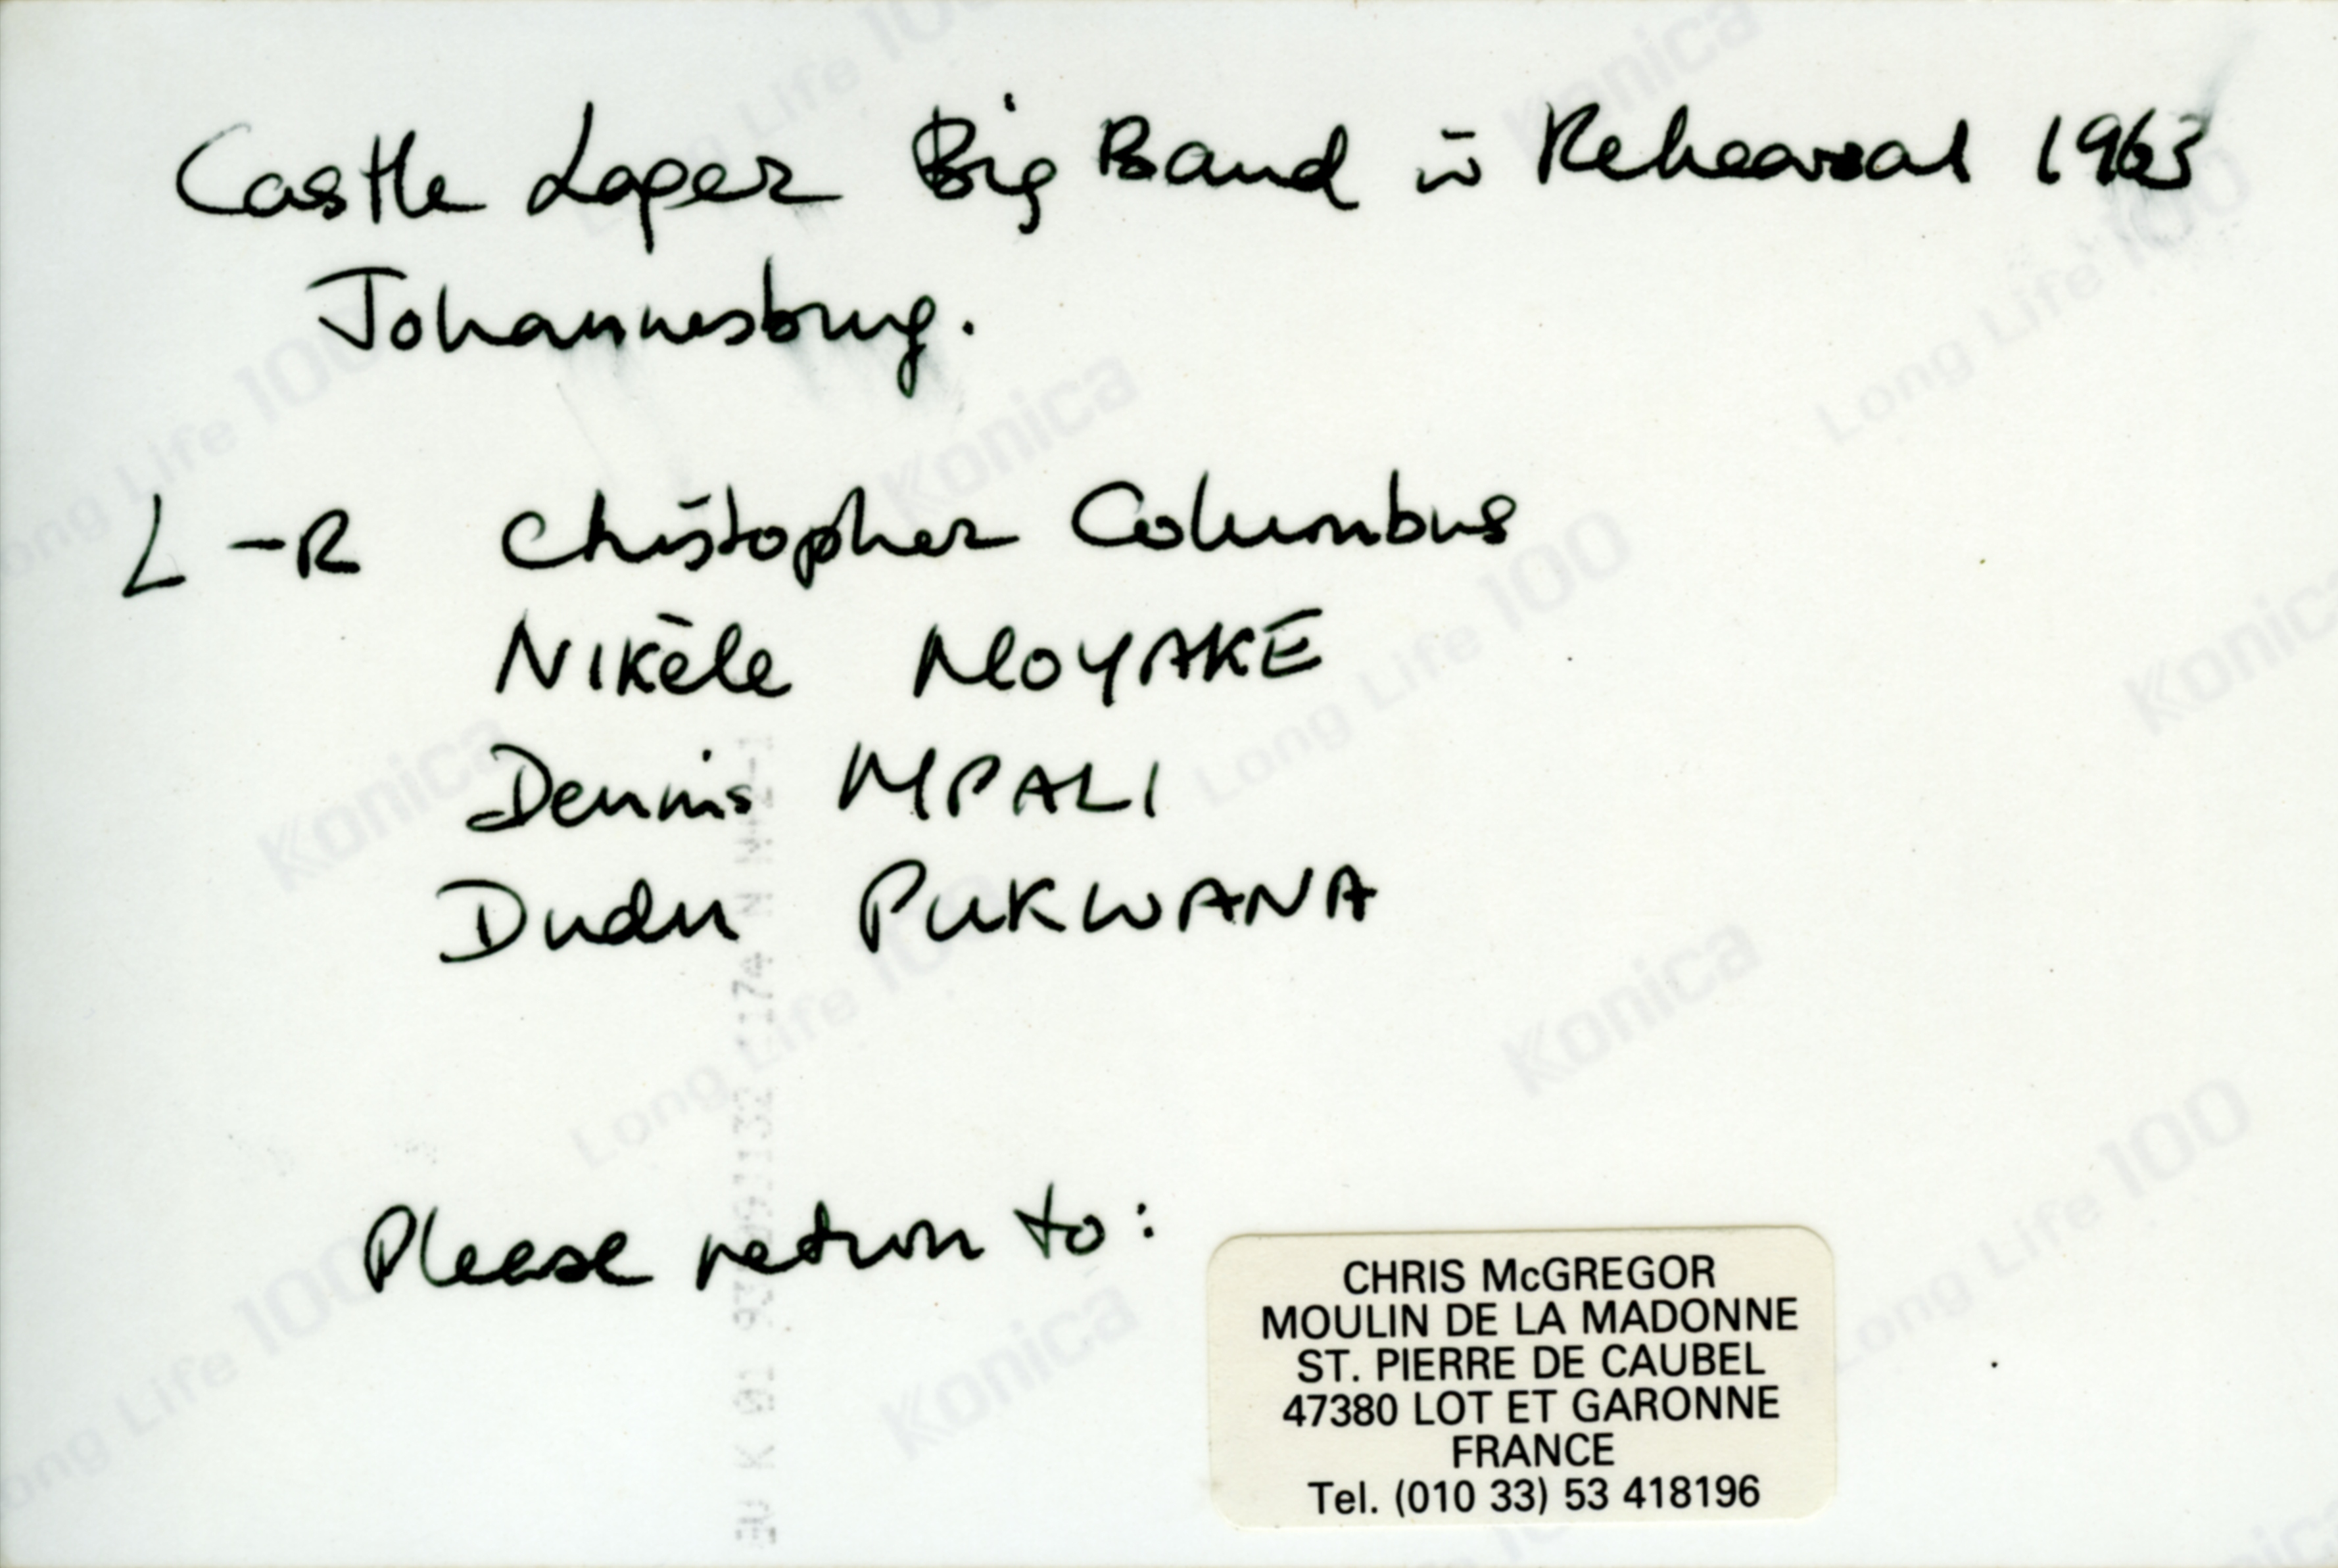 Castle Lager Big Band in Rehearsal 1963
Johannesburg.
L - R Christopher Columbus
Nikèle MOYAKE
Dennis MPALI
Dudu PUKWANA
Please return to:
CHRIS McGREGOR
MOULIN DE LA MADONNE
ST. PIERRE DE CAUBEL
47380 LOT ET GARONNE
FRANCE
Tel. (010 33) 53 418196
Konica
Long Life 100